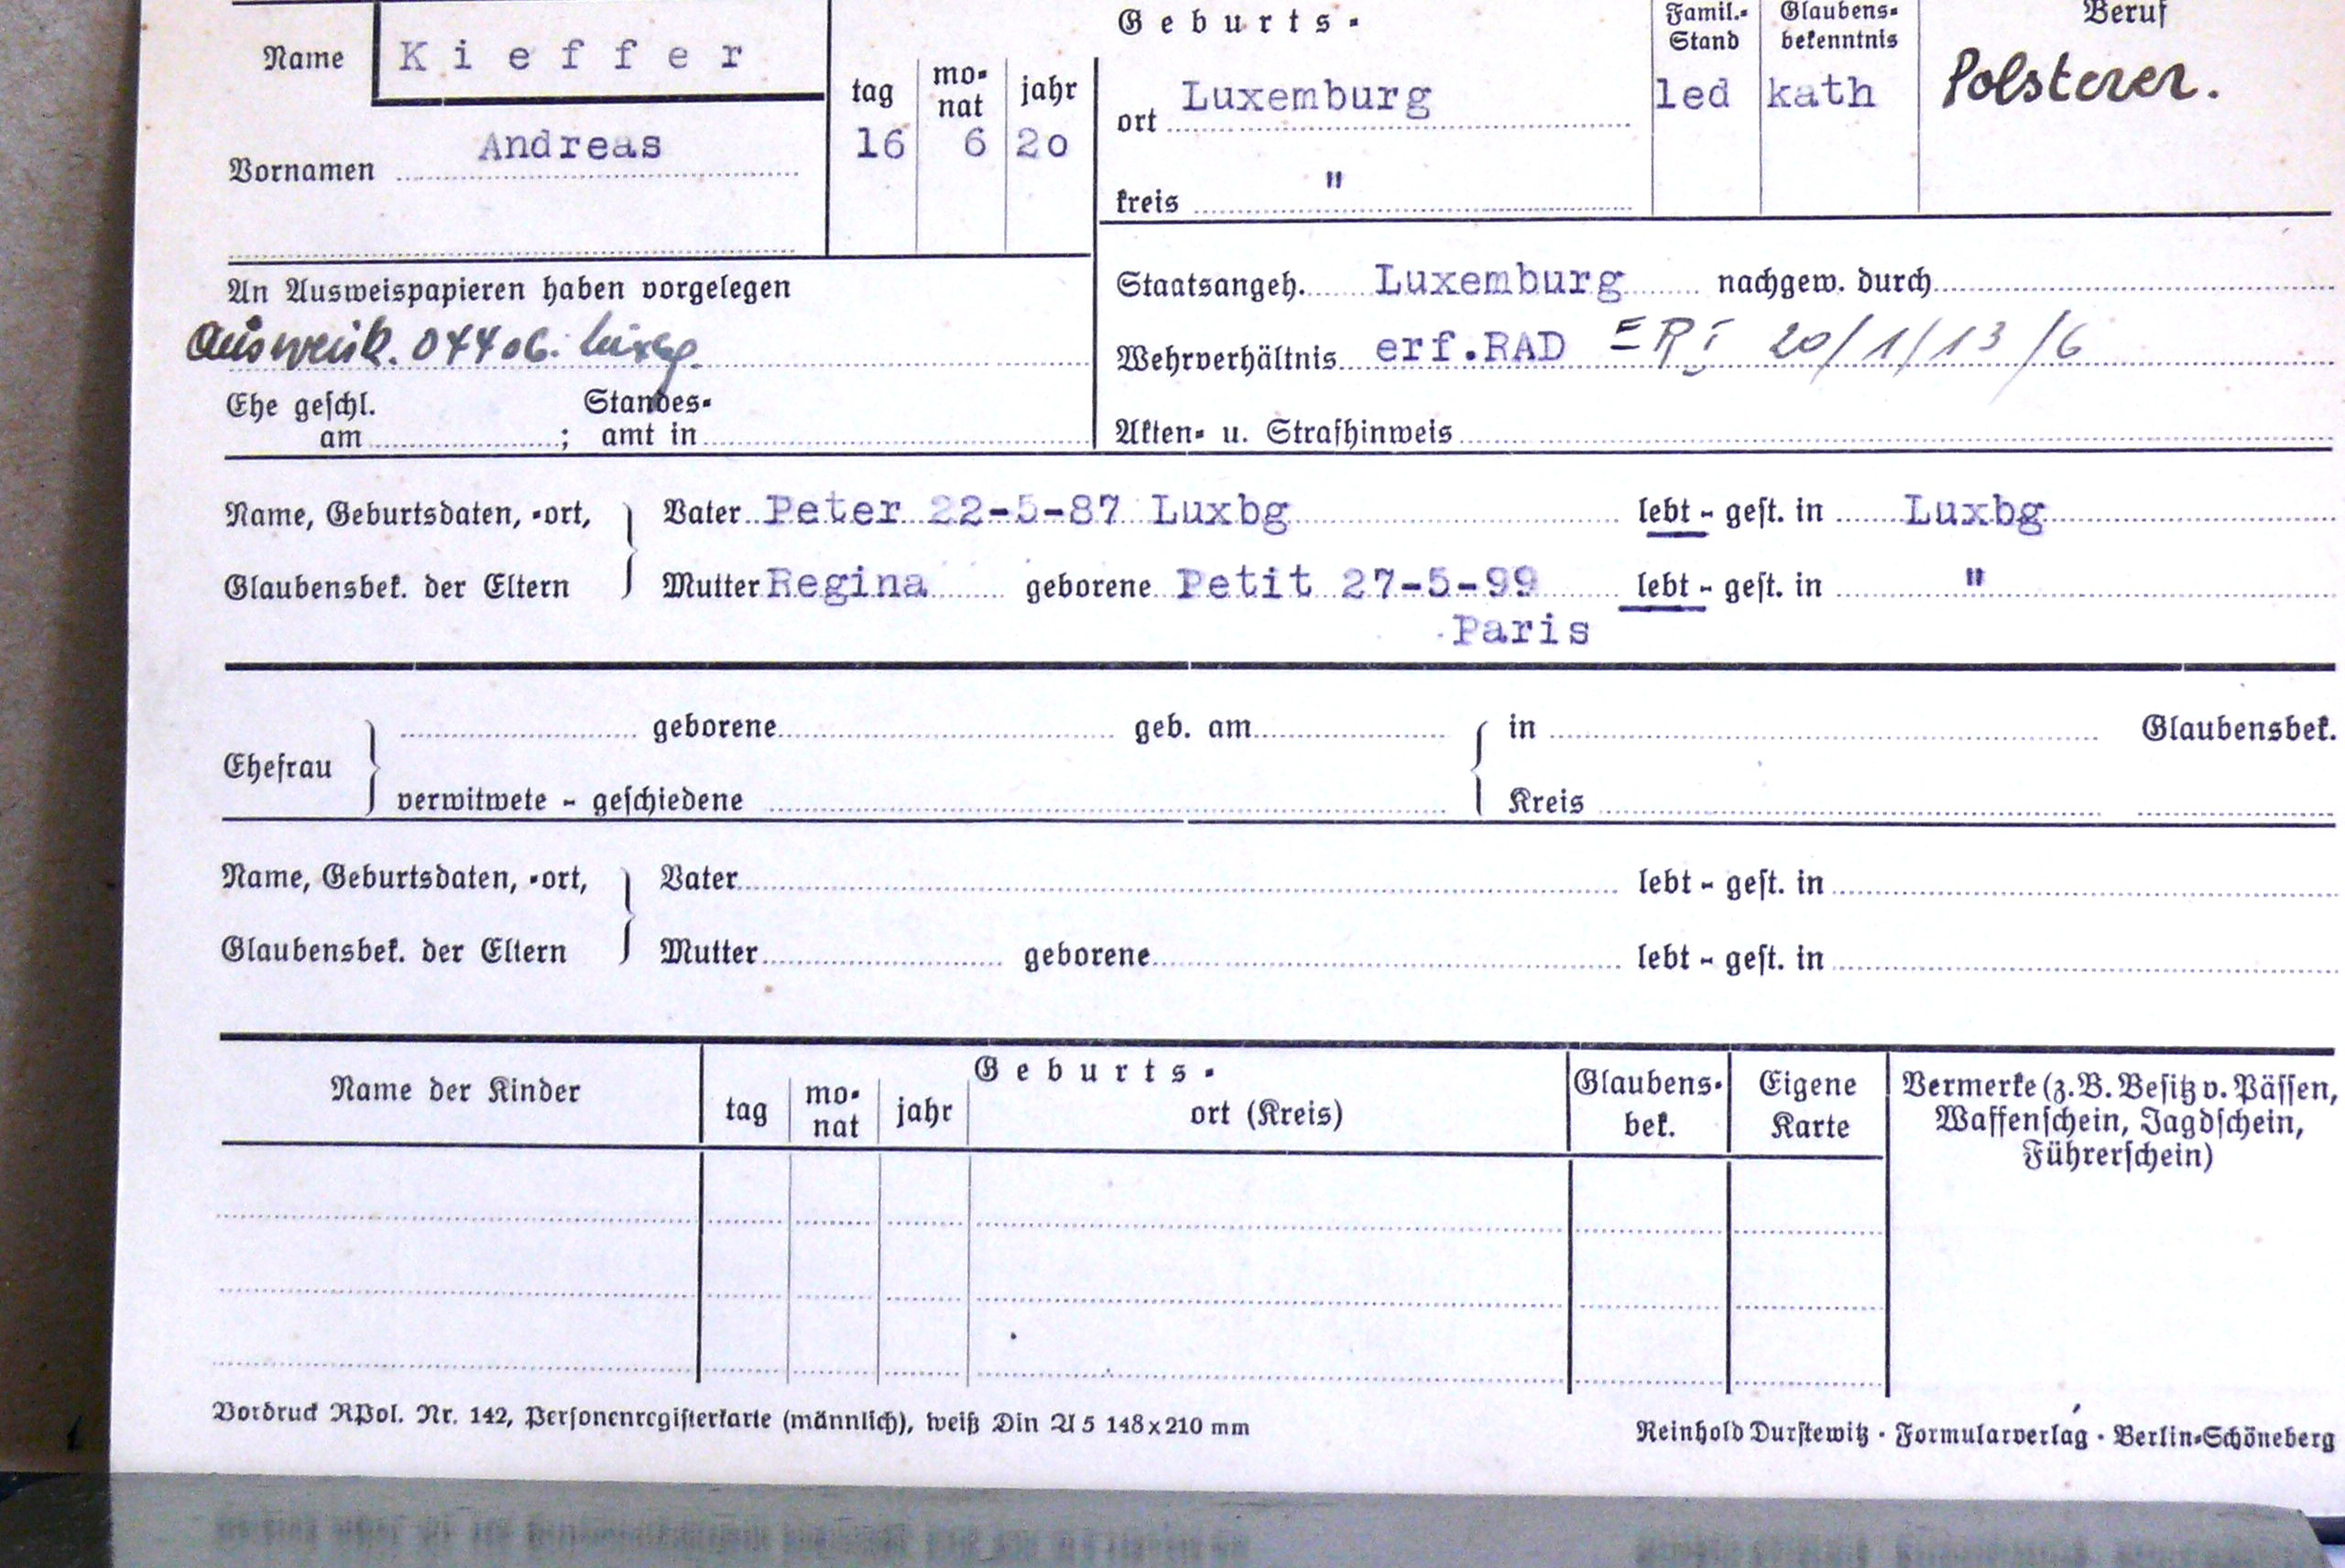 Geburts- Famil.- Glaubens- Beruf
Name Kieffer Stand bekenntnis
tag mo- jahr ort Luxemburg led kath Polsterer.
nat
Vornamen Andreas 16 6 2o
kreis "
An Ausweispapieren haben vorgelegen Staatsangeh. Luxemburg nachgew. durch
Ausweisk. Wehrverhältnis erf.RAD 20/1/13/6
Ehe geschl. Standes-
am ; amt in Akten- u. Strafhinweis
Name, Geburtsdaten, -ort, Vater Peter 22-5-87 Luxbg lebt - gest. in Luxbg
Glaubensbek. der Eltern Mutter Regina geborene Petit 27-5-99 lebt - gest. in "
Paris
geborene geb. am in Glaubensbek.
Ehefrau
verwitwete - geschiedene Kreis
Name, Geburtsdaten, -ort, Vater lebt - gest. in
Glaubensbek. der Eltern Mutter geborene lebt - gest. in
Geburts-
Name der Kinder tag mo- jahr ort (Kreis) Glaubens- Eigene Vermerke (z.B. Besitz v. Pässen,
nat bek. Karte Waffenschein, Jagdschein,
Führerschein)
Vordruck RPol. Nr. 142, Personenregisterkarte (männlich), weiß Din A 5 148x210 mm Reinhold Durstewitz · Formularverlag · Berlin-Schöneberg